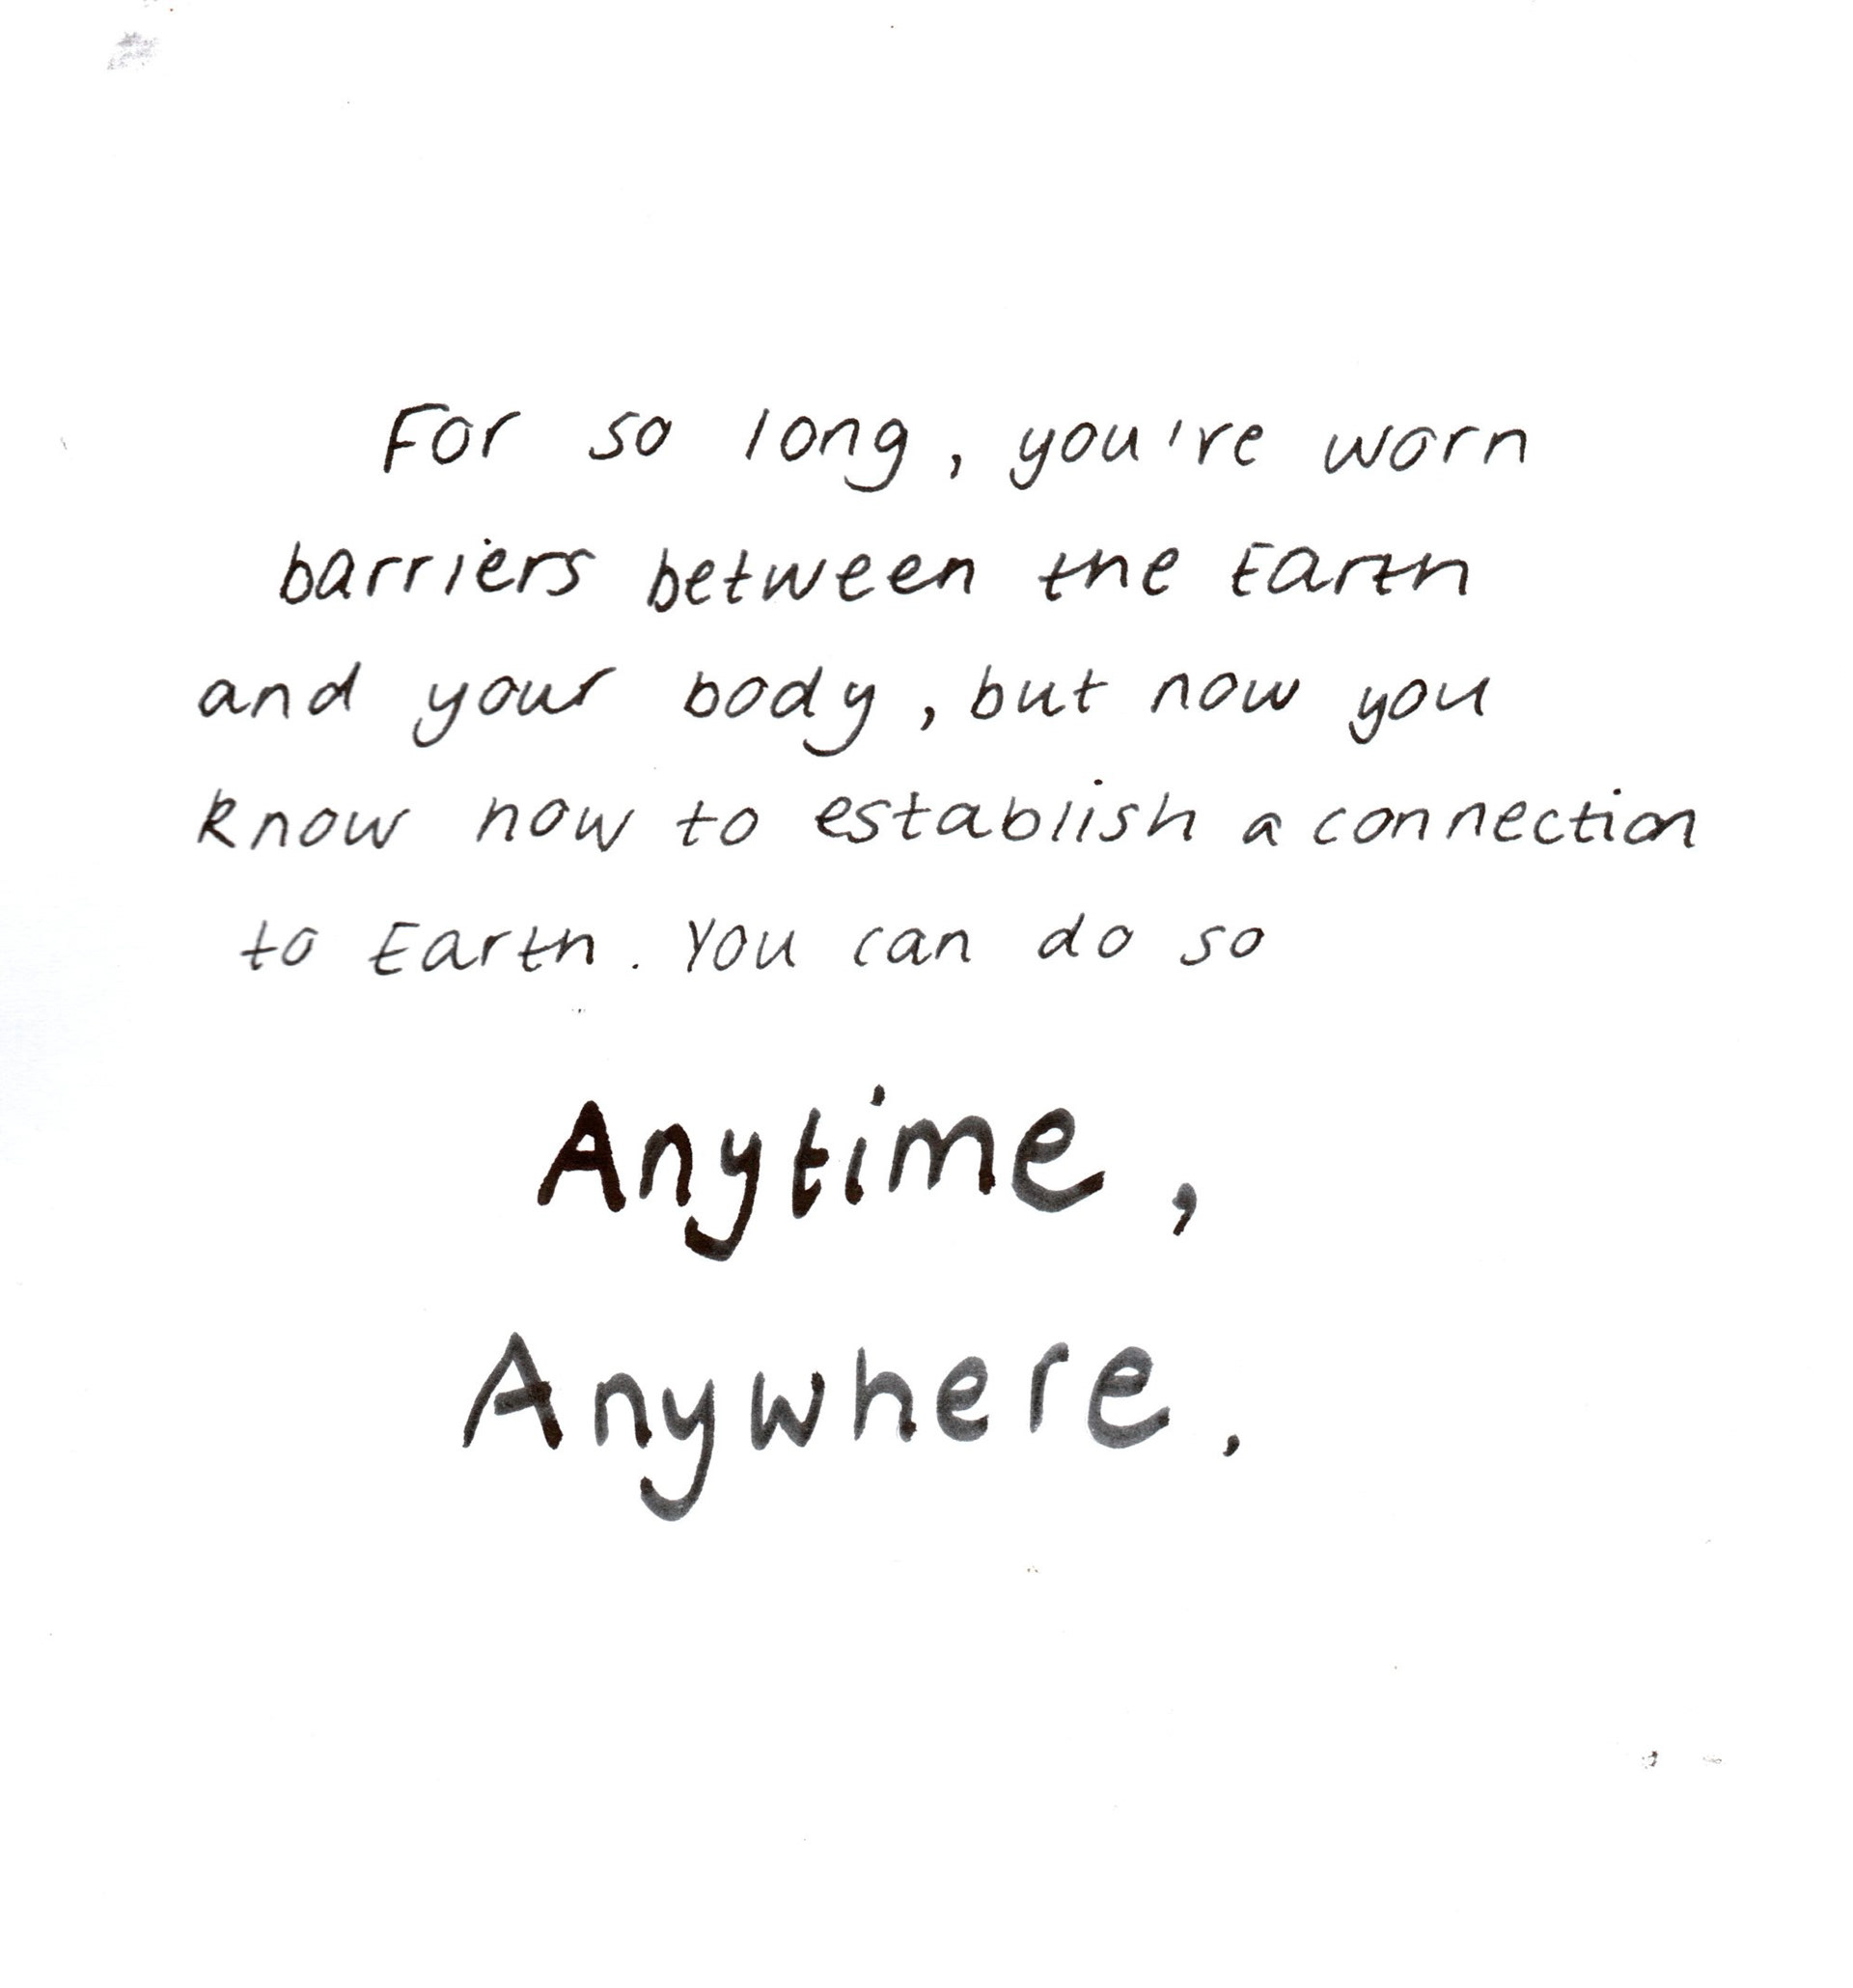 For so long, you're worn
barriers between the Earth
and your body, but now you
know how to establish a connection
to Earth. You can do so
Anytime,
Anywhere.